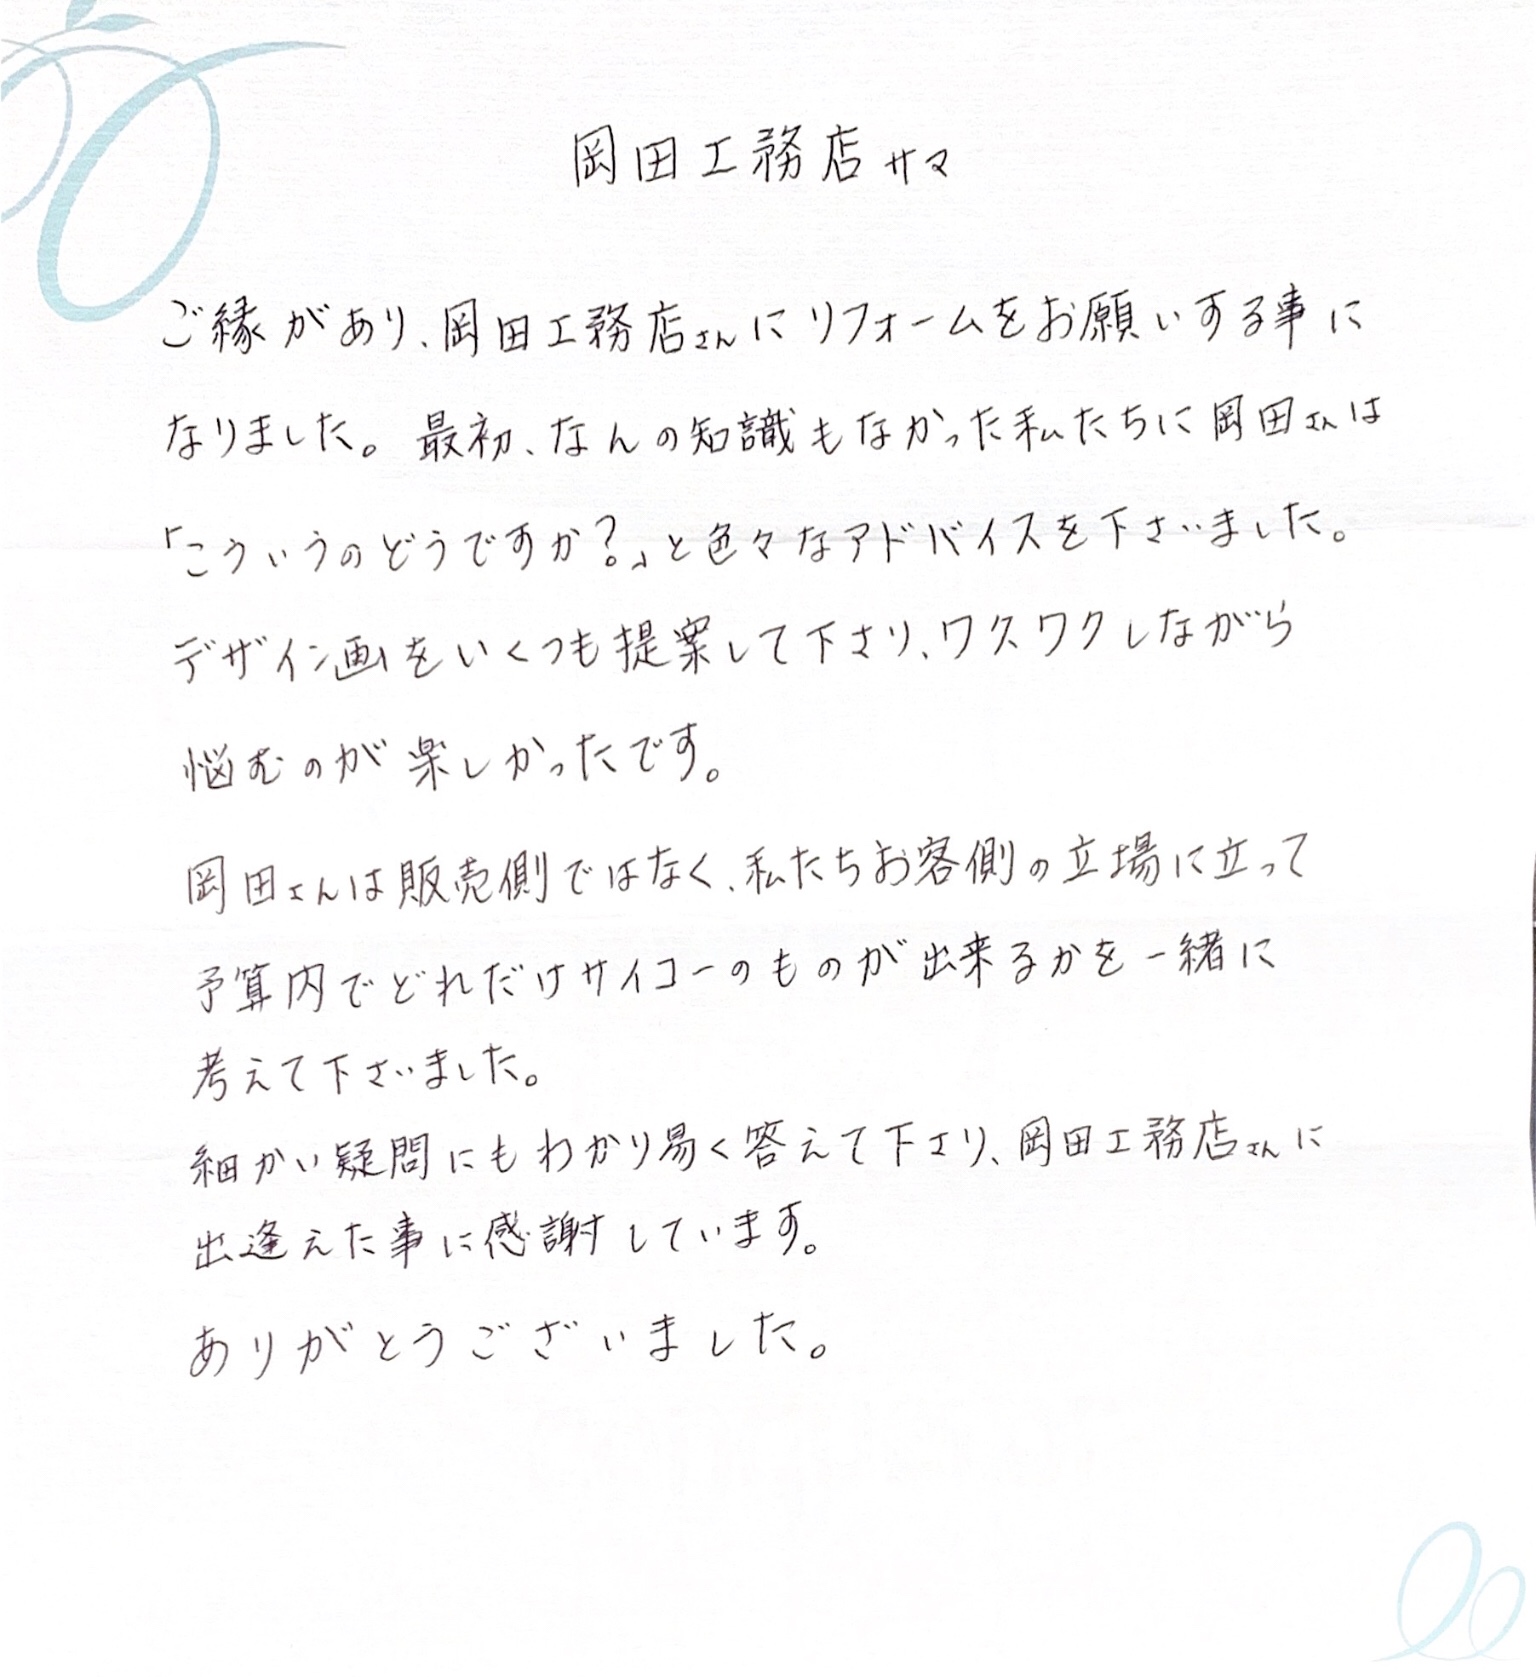 岡田工務店サマ
ご縁があり、岡田工務店さんにリフォームをお願いする事に
なりました。最初、なんの知識もなかった私たちに岡田さんは
「こういうのどうですか?」と色々なアドバイスを下さいました。
デザイン画をいくつも提案して下さり、ワクワクしながら
悩むのが楽しかったです。
岡田さんは販売側ではなく、私たちお客側の立場に立って
予算内でどれだけサイコーのものが出来るかを一緒に
考えて下さいました。
細かい疑問にもわかり易く答えて下さり、岡田工務店さんに
出逢えた事に感謝しています。
ありがとうございました。